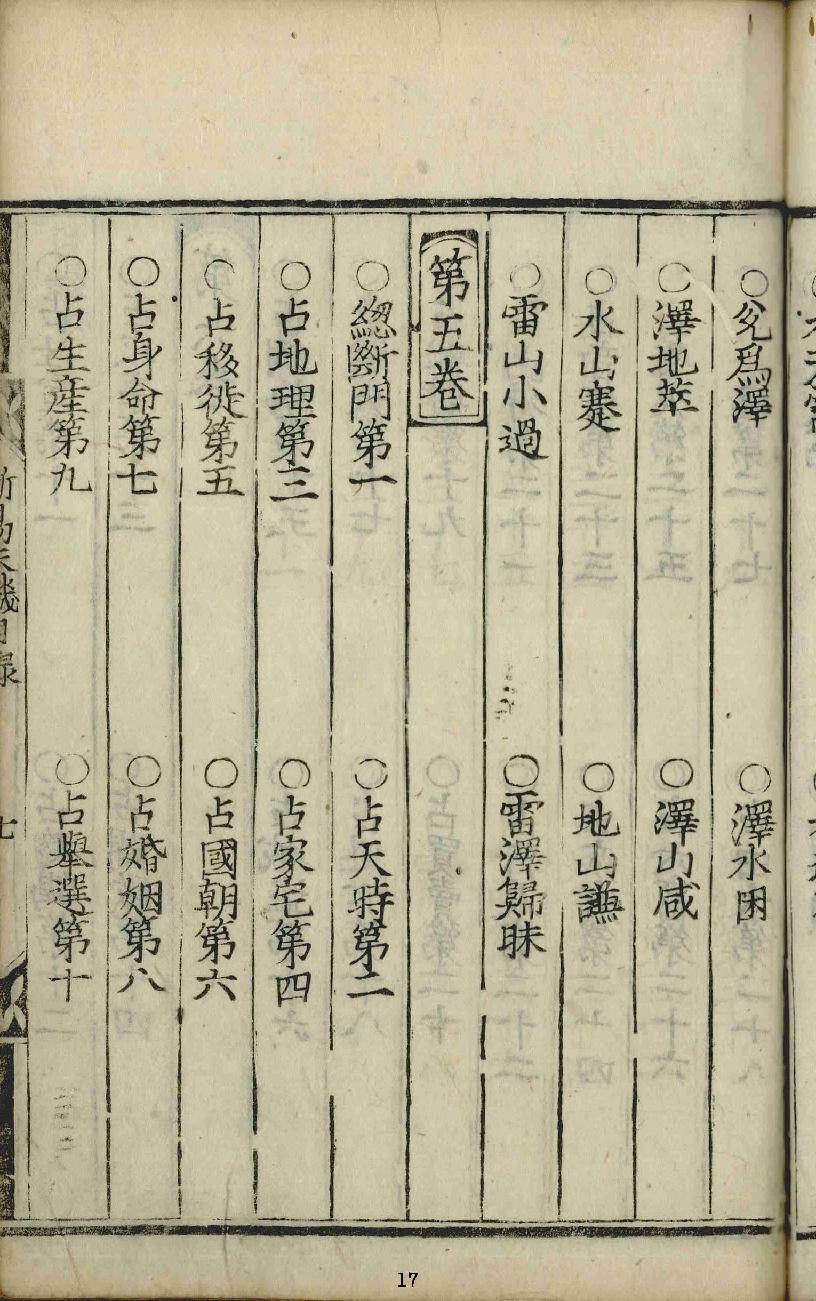 ○兌爲澤　○澤水困
○澤地萃　○澤山咸
○水山蹇　○地山謙
○雷山小過　○雷澤歸昧
第五卷
○緫斷門第一　○占天時第二
○占地理第三　○占家宅第四
○占移徙第五　○占國朝第六
○占身命第七　○占婚姻第八
○占生産第九　○占舉選第十
斷易天機目録
七
17